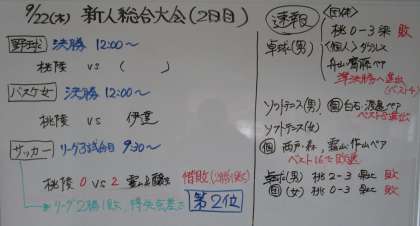 9/22(木) 新人総合大会(2日目)
野球 決勝 12:00～
桃陵 vs ( )
バスケ女 決勝 12:00～
桃陵 vs 伊達
サッカー リーグ3試合目 9:30～
桃陵 0 vs 2 霊山 惜敗(2勝1敗)
リーグ2勝1敗、得失点差で 第2位
速報
卓球(男) <団体>
桃 0-3 梁 敗
<個人> ダブルス
舟山・齋藤ペア
準決勝へ進出
(ベスト4)
ソフトテニス(男) 個 白石・渡邉ペア
ベスト8進出
ソフトテニス(女)
個 西戸・森、霊山・作山ペア
ベスト16で敗退
(男) 桃 2-3 敗
(女) 桃 0-3 敗